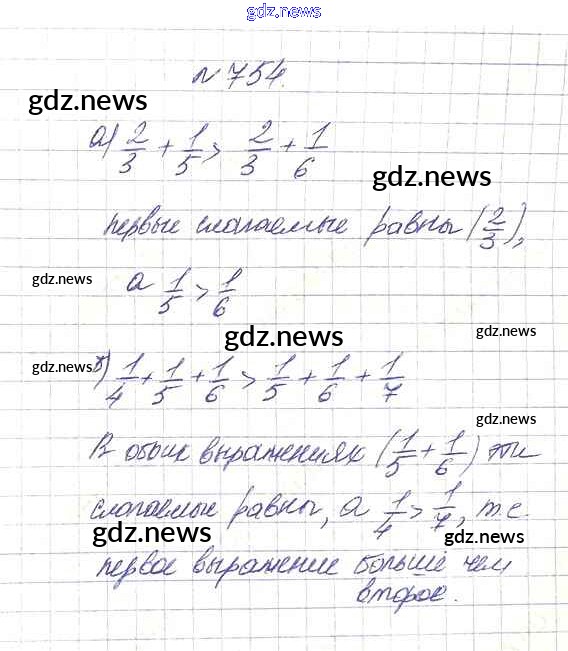 gdz.news
№ 754.
gdz.news
а) 2/3 + 1/5 > 2/3 + 1/6
gdz.news
первые слагаемые равны (2/3),
gdz.news
а 1/5 > 1/6
gdz.news
gdz.news
б) 1/4 + 1/5 + 1/6 > 1/5 + 1/6 + 1/7
gdz.news
gdz.news
В обоих выражениях (1/5 + 1/6) эти
слагаемые равны, а 1/4 > 1/7, т.е.
gdz.news
gdz.news
первое выражение больше чем
второе.